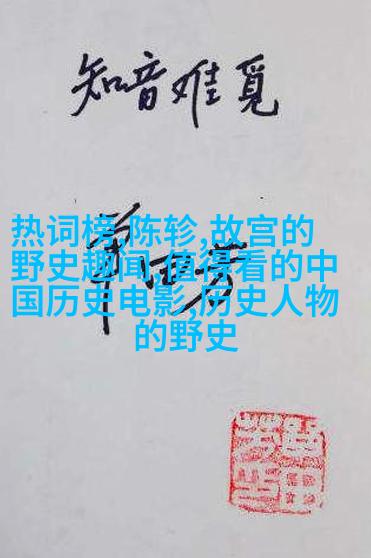 知音难觅
热词榜,陈轸,故宫的
野史趣闻,值得看的中
国历史电影,历史人物
的野史
单田芳